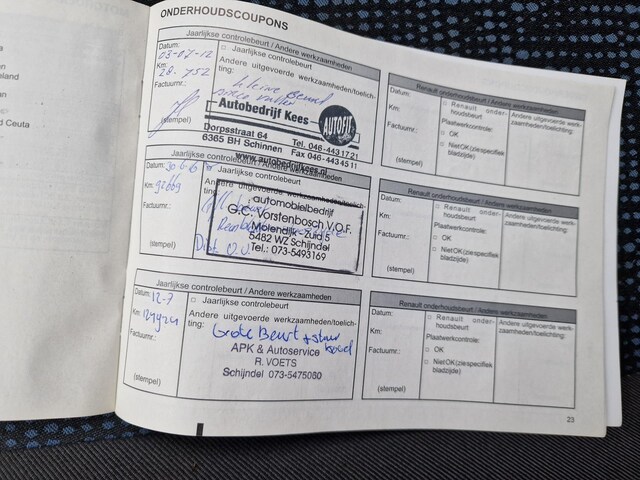 ONDERHOUDSCOUPONS
Jaarlijkse controlebeurt / Andere werkzaamheden
Datum: 03-07-12
□ Jaarlijkse controlebeurt
Andere uitgevoerde werkzaamheden/toelichting:
Km: 28.752
Kleine Beurt
Factuurnr.:
(stempel)
Autobedrijf Kees
AUTOFIT
Dorpsstraat 64 Tel. 046-443 17 21
6365 BH Schinnen Fax 046-443 45 11
www.autobedrijfkees.nl
Renault onderhoudsbeurt / Andere werkzaamheden
Datum:
Km:
Factuurnr.:
(stempel)
□ Renault onderhoudsbeurt
Plaatwerkcontrole:
□ OK
□ Niet OK (zie specifiek bladzijde)
Andere uitgevoerde werkzaamheden/toelichting:
Jaarlijkse controlebeurt / Andere werkzaamheden
Datum:
Andere uitgevoerde werkzaamheden/toelichting:
Km:
Factuurnr.:
(stempel)
automobielbedrijf
G.C. Vorstenbosch V.O.F.
Molendijk-Zuid 5
5482 WZ Schijndel
Tel.: 073-5493169
Renault onderhoudsbeurt / Andere werkzaamheden
Datum:
Km:
Factuurnr.:
(stempel)
□ Renault onderhoudsbeurt
Plaatwerkcontrole:
□ OK
□ Niet OK (zie specifiek bladzijde)
Andere uitgevoerde werkzaamheden/toelichting:
Jaarlijkse controlebeurt / Andere werkzaamheden
Datum: 12-7
□ Jaarlijkse controlebeurt
Andere uitgevoerde werkzaamheden/toelichting:
Km:
Grote Beurt + stuur kogel
Factuurnr.:
(stempel)
APK & Autoservice
R. VOETS
Schijndel 073-5475080
Renault onderhoudsbeurt / Andere werkzaamheden
Datum:
Km:
Factuurnr.:
(stempel)
□ Renault onderhoudsbeurt
Plaatwerkcontrole:
□ OK
□ Niet OK (zie specifiek bladzijde)
Andere uitgevoerde werkzaamheden/toelichting:
23
d Ceuta